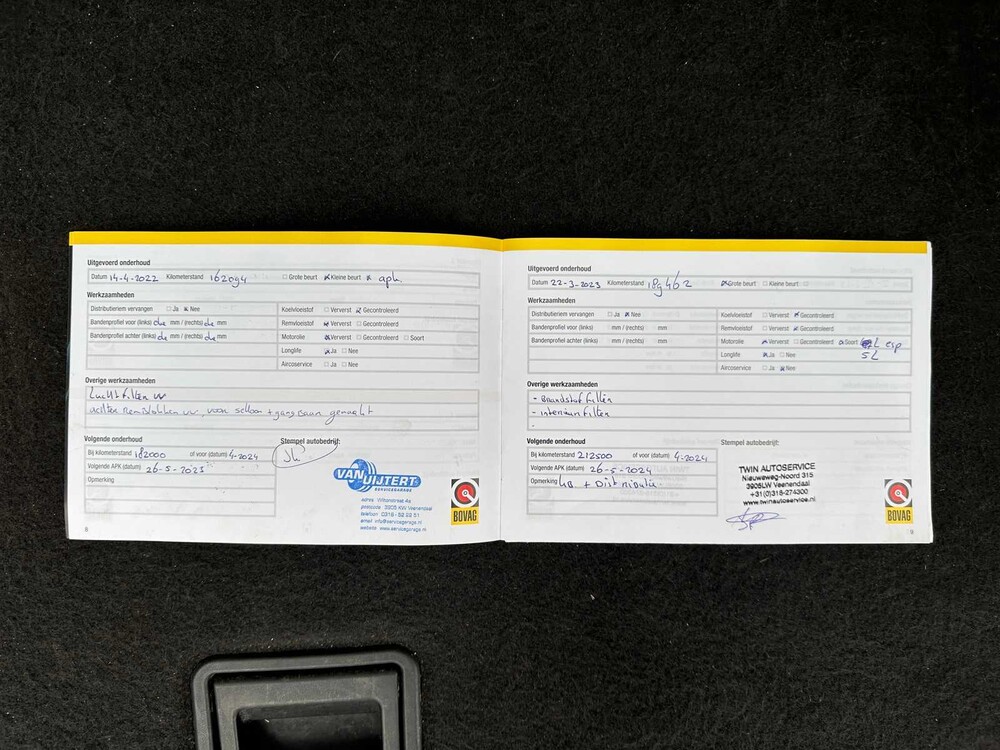 Uitgevoerd onderhoud
Datum 14-4-2022 Kilometerstand 162094 Grote beurt Kleine beurt apk
Werkzaamheden
Distributieriem vervangen Ja Nee
Bandenprofiel voor (links) mm / (rechts) mm
Bandenprofiel achter (links) mm / (rechts) mm
Koelvloeistof Ververst Gecontroleerd
Remvloeistof Ververst Gecontroleerd
Motorolie Ververst Gecontroleerd Soort
Longlife Ja Nee
Aircoservice Ja Nee
Overige werkzaamheden
Luchtfilter vv
achter remblokken vv, voor schoon + gangbaar gemaakt
Volgende onderhoud
Bij kilometerstand 182000 of voor (datum) 4-2024
Volgende APK (datum) 26-5-2023
Opmerking
Stempel autobedrijf:
VAN UIJTERT
SERVICEGARAGE
adres: Wiltonstraat 4a
postcode: 3905 KW Veenendaal
telefoon: 0318 - 52 22 51
email: info@servicegarage.nl
website: www.servicegarage.nl
BOVAG
8
Uitgevoerd onderhoud
Datum 22-3-2023 Kilometerstand 189462 Grote beurt Kleine beurt
Werkzaamheden
Distributieriem vervangen Ja Nee
Bandenprofiel voor (links) mm / (rechts) mm
Bandenprofiel achter (links) mm / (rechts) mm
Koelvloeistof Ververst Gecontroleerd
Remvloeistof Ververst Gecontroleerd
Motorolie Ververst Gecontroleerd Soort esp
5L
Longlife Ja Nee
Aircoservice Ja Nee
Overige werkzaamheden
- Brandstoffilter
- interieurfilter
-
Volgende onderhoud
Bij kilometerstand 212500 of voor (datum) 4-2024
Volgende APK (datum) 26-5-2024
Opmerking GB. + Distributie.
Stempel autobedrijf:
TWIN AUTOSERVICE
Nieuweweg-Noord 315
3905LW Veenendaal
+31(0)318-274300
www.twinautoservice.nl
BOVAG
9